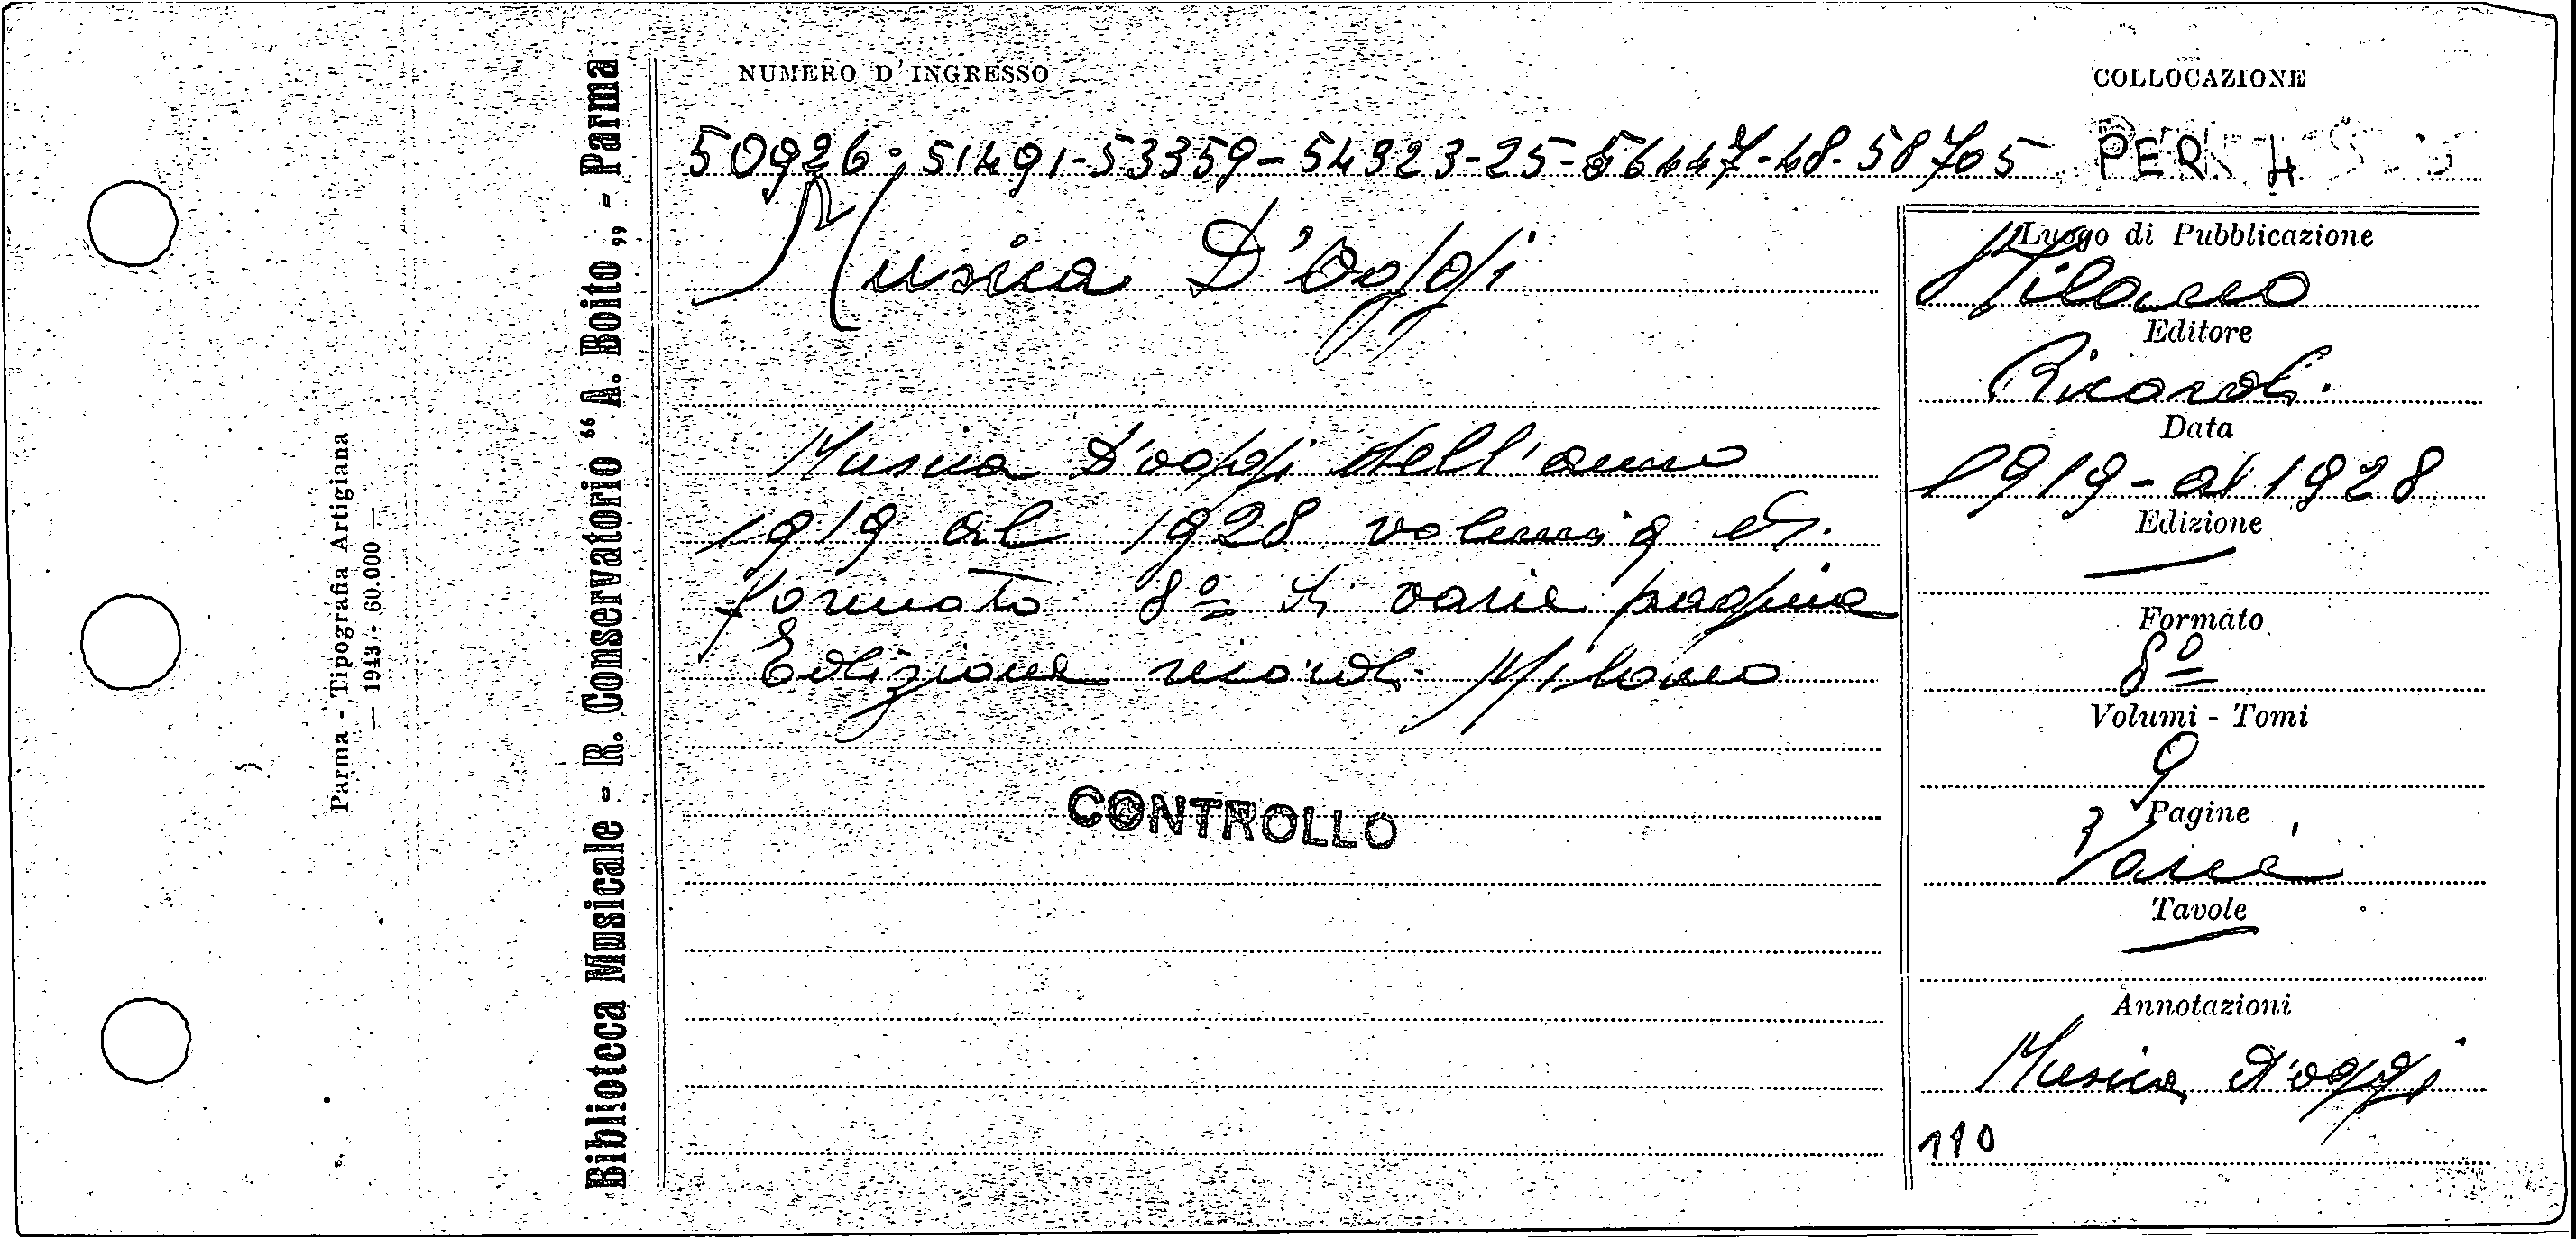 Biblioteca Musicale - R. Conservatorio “A. Boito„ - Parma
Parma - Tipografia Artigiana
— 1943 - 60.000 —
NUMERO D'INGRESSO
50926; 51491-53359-54323-25-56447-48-58705
Musica D'Oggi
Musica D'oggi dell'anno
1919 al 1928 volumi 9 di
formato 8º di varie pagine
Edizione ricordi Milano
CONTROLLO
COLLOCAZIONE
PER. 4
Luogo di Pubblicazione
Milano
Editore
Ricordi.
Data
1919 - al 1928
Edizione
Formato
8º
Volumi - Tomi
9
Pagine
Varie
Tavole
Annotazioni
Musica d'oggi
110